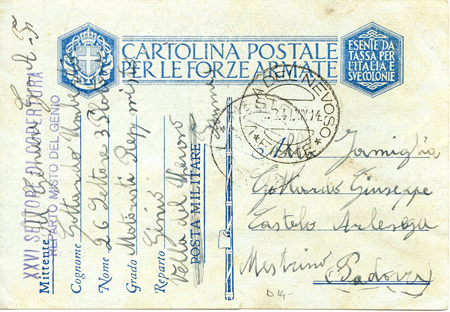 CARTOLINA POSTALE
PER LE FORZE ARMATE
ESENTE DA
TASSA PER
L'ITALIA E
SUE COLONIE
NEVOSO
FIUME
Alla Famiglia
Gottardo Giuseppe
Castelo Arlesega
Mestrino (Padova)
XXVI SETTORE DI COPERTURA
REPARTO MISTO DEL GENIO
Mittente
Cognome Gottardo
Nome 26 Settore 3
Grado Motorista Rep. misto
Reparto Genio
Villa del Nevoso
POSTA MILITARE Fiume